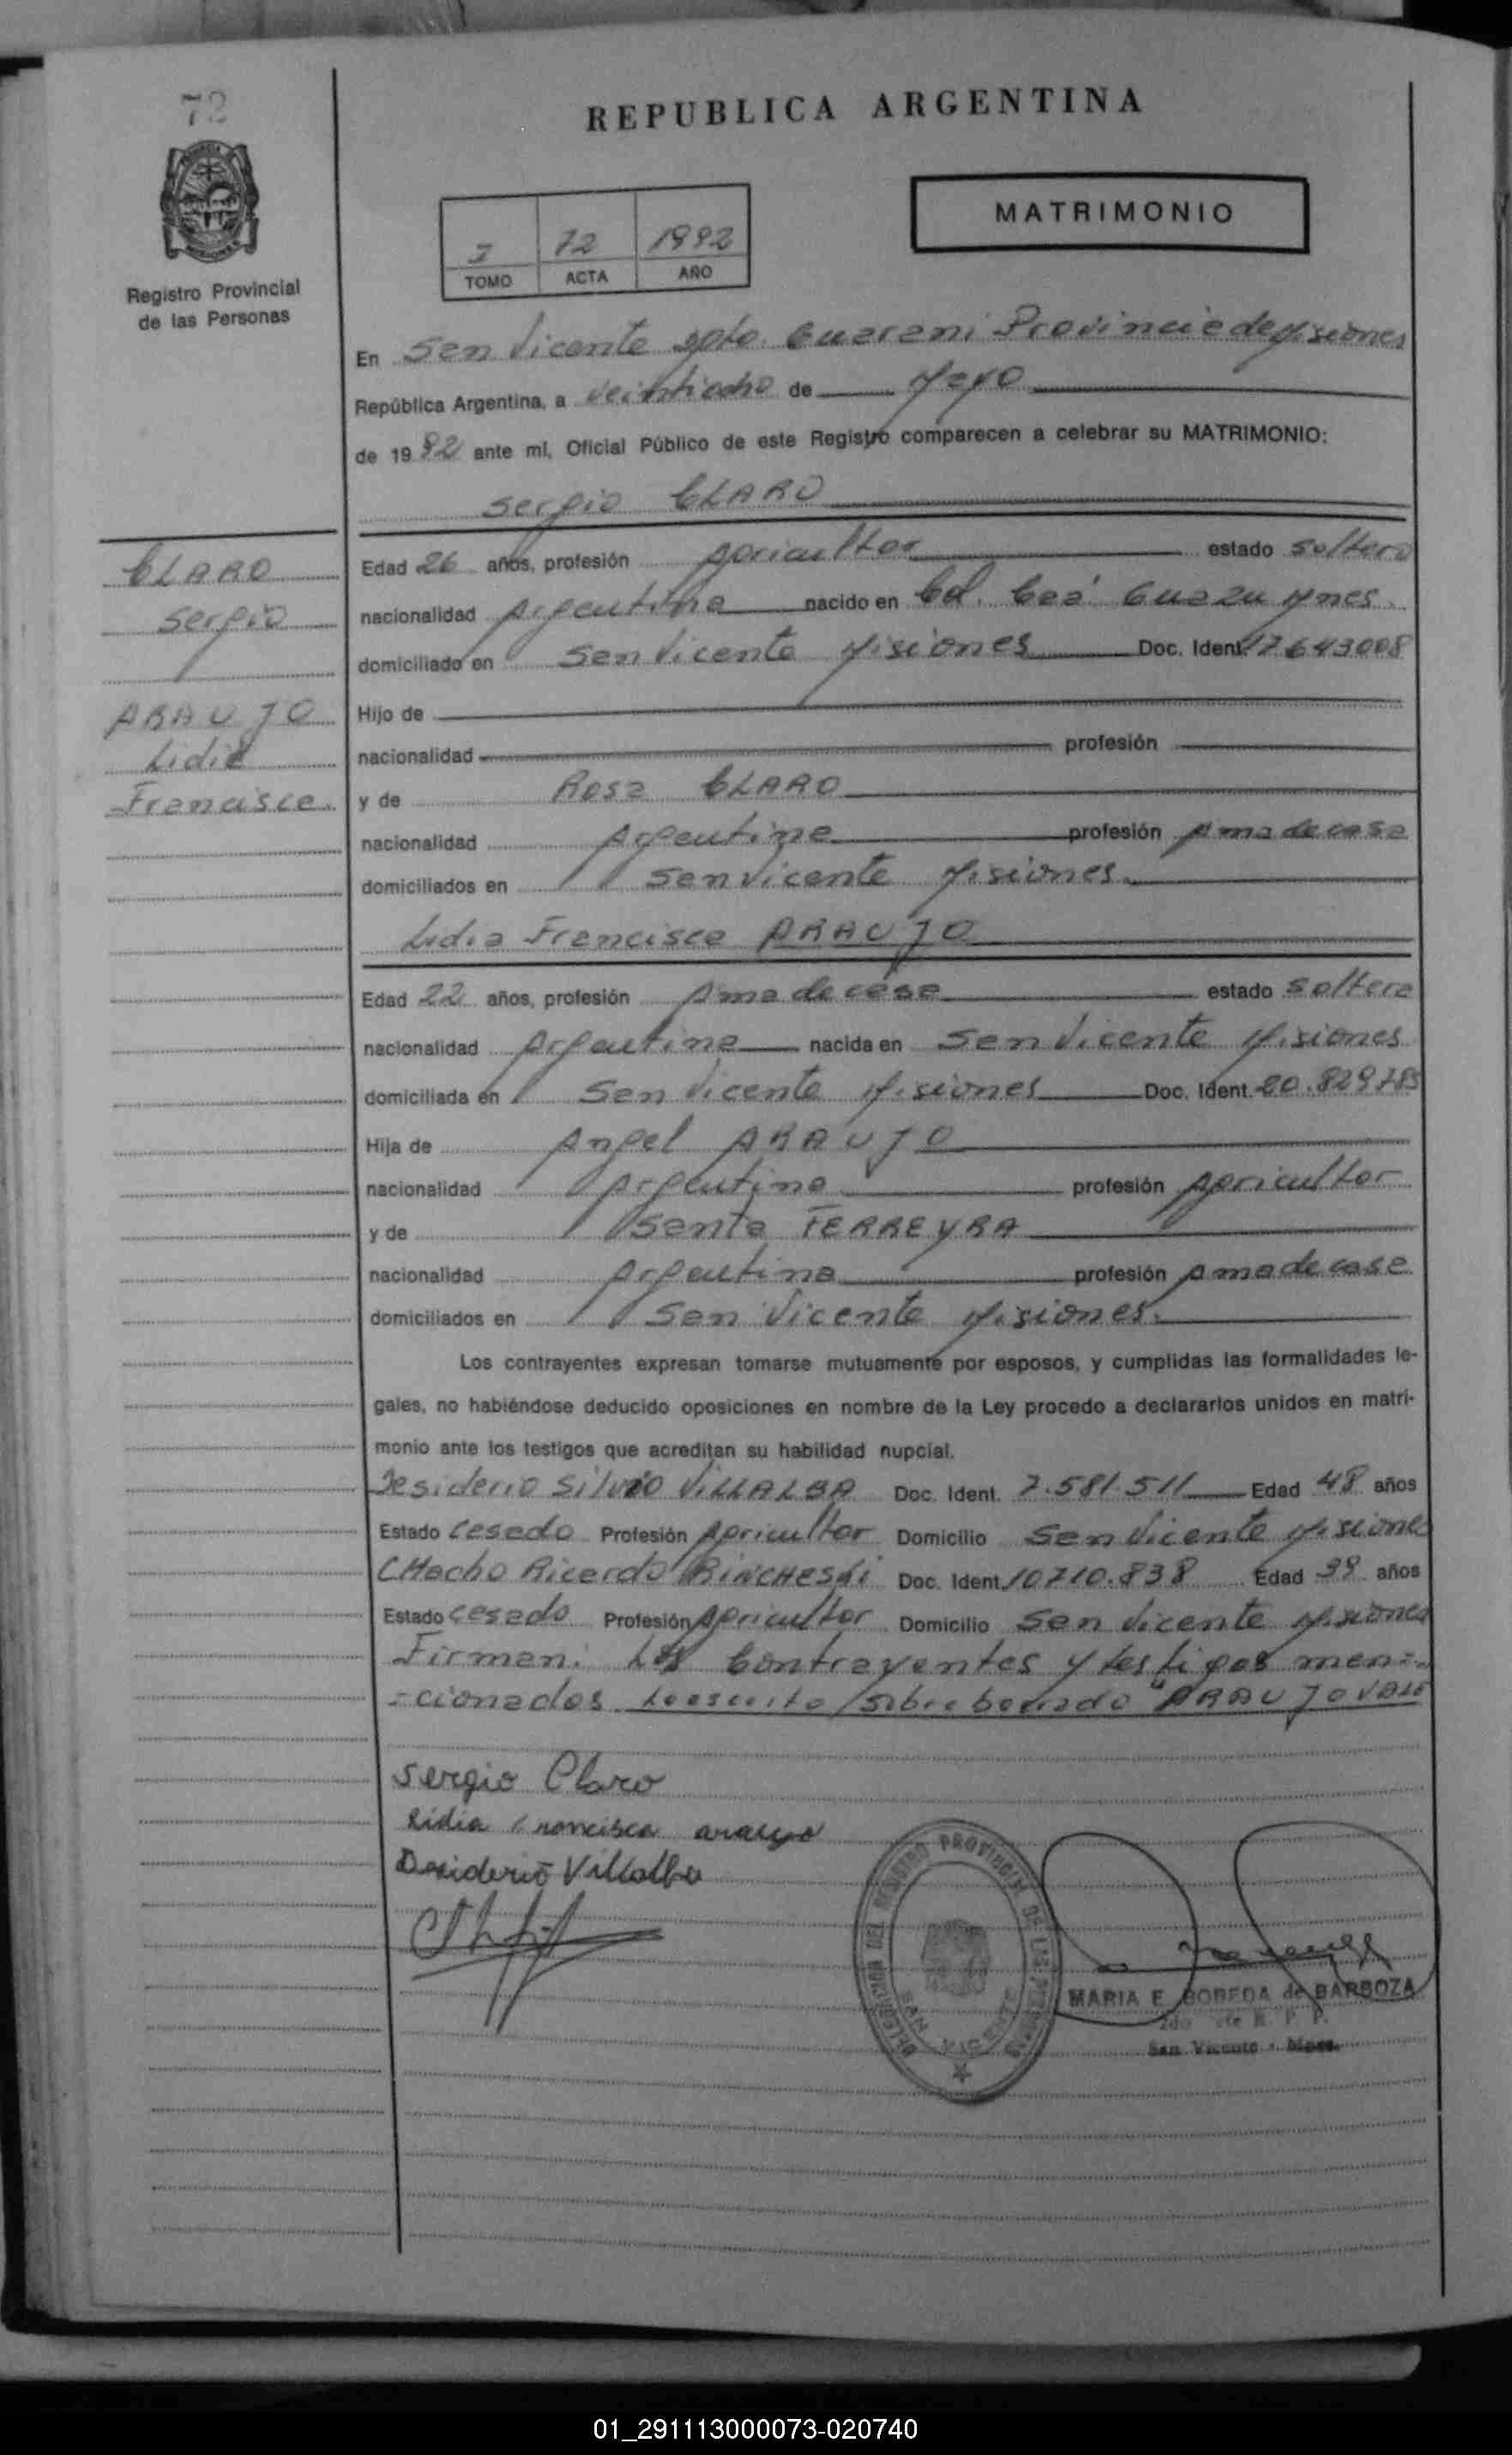 72
REPUBLICA ARGENTINA
MATRIMONIO
I 72 1992
TOMO ACTA AÑO
Registro Provincial
de las Personas
En San Vicente Dpto. Guarani Provincia de Misiones
República Argentina, a veintiocho de Mayo
de 1992 ante mi, Oficial Público de este Registro comparecen a celebrar su MATRIMONIO:
Sergio CLARO
CLARO
Sergio
ARAUJO
Lidia
Francisca
Edad 26 años, profesión Agricultor estado Soltero
nacionalidad Argentina nacido en Col. Caá Guazu Mnes.
domiciliado en San Vicente Misiones Doc. Ident. 17.643008
Hijo de
nacionalidad profesión
y de Rosa CLARO
nacionalidad Argentina profesión Ama de casa
domiciliados en San Vicente Misiones.
Lidia Francisca ARAUJO
Edad 22 años, profesión Ama de casa estado Soltera
nacionalidad Argentina nacida en San Vicente Misiones
domiciliada en San Vicente Misiones Doc. Ident. 20.829785
Hija de Angel ARAUJO
nacionalidad Argentina profesión Agricultor
y de Santa FERREYRA
nacionalidad Argentina profesión Ama de casa
domiciliados en San Vicente Misiones.
Los contrayentes expresan tomarse mutuamente por esposos, y cumplidas las formalidades le-
gales, no habiéndose deducido oposiciones en nombre de la Ley procedo a declararlos unidos en matri-
monio ante los testigos que acreditan su habilidad nupcial.
Desiderio Silvio VILLALBA Doc. Ident. 7.581.511 Edad 48 años
Estado Casado Profesión Agricultor Domicilio San Vicente Misiones
CHacho Ricardo RINCHESKI Doc. Ident. 10710.838 Edad 39 años
Estado Casado Profesión Agricultor Domicilio San Vicente Misiones
Firman: Los Contrayentes y testigos men=
=cionados. Lo escrito sobre borrado "ARAUJO VALE
Sergio Claro
Lidia Francisca araujo
Desiderio Villalba
DEL REGISTRO PROVINCIAL DE LAS PERSONAS
SAN VICENTE
MARIA E. BOBEDA de BARBOZA
R. P. P.
San Vicente - Mnes.
01_291113000073-020740